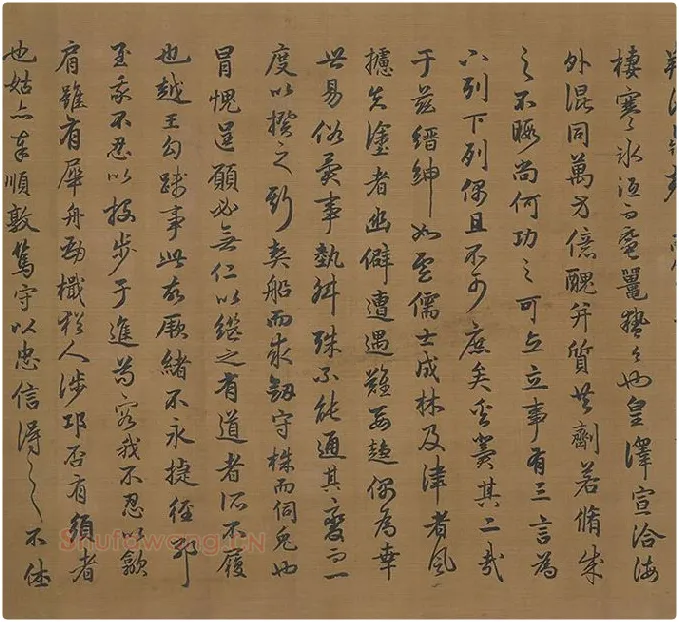 棲寒冰沍而黿鼉蟄今也皇澤宣洽海
外混同萬方億醜并質共劑若脩成
之不暇尚何功之可立立事有三言為
下列下列偶且不可庶矣奚冀其二哉
于茲縉紳如雲儒士成林及津者風
攄失塗者幽僻遭遇難要趍偶為幸
世易俗異事埶舛殊不能通其變而一
度以揆之斯契船而求劒守株而伺兔也
冒愧逞願必無仁以繼之有道者所不履
也越王勾踐事此故厥緒不永捷徑邪
至我不忍以投步于進苟容我不忍以歙
肩雖有犀舟勁檝猶人涉卬否有須者
也姑亦奉順敦篤守以忠信得之不休
Shufawang.CN